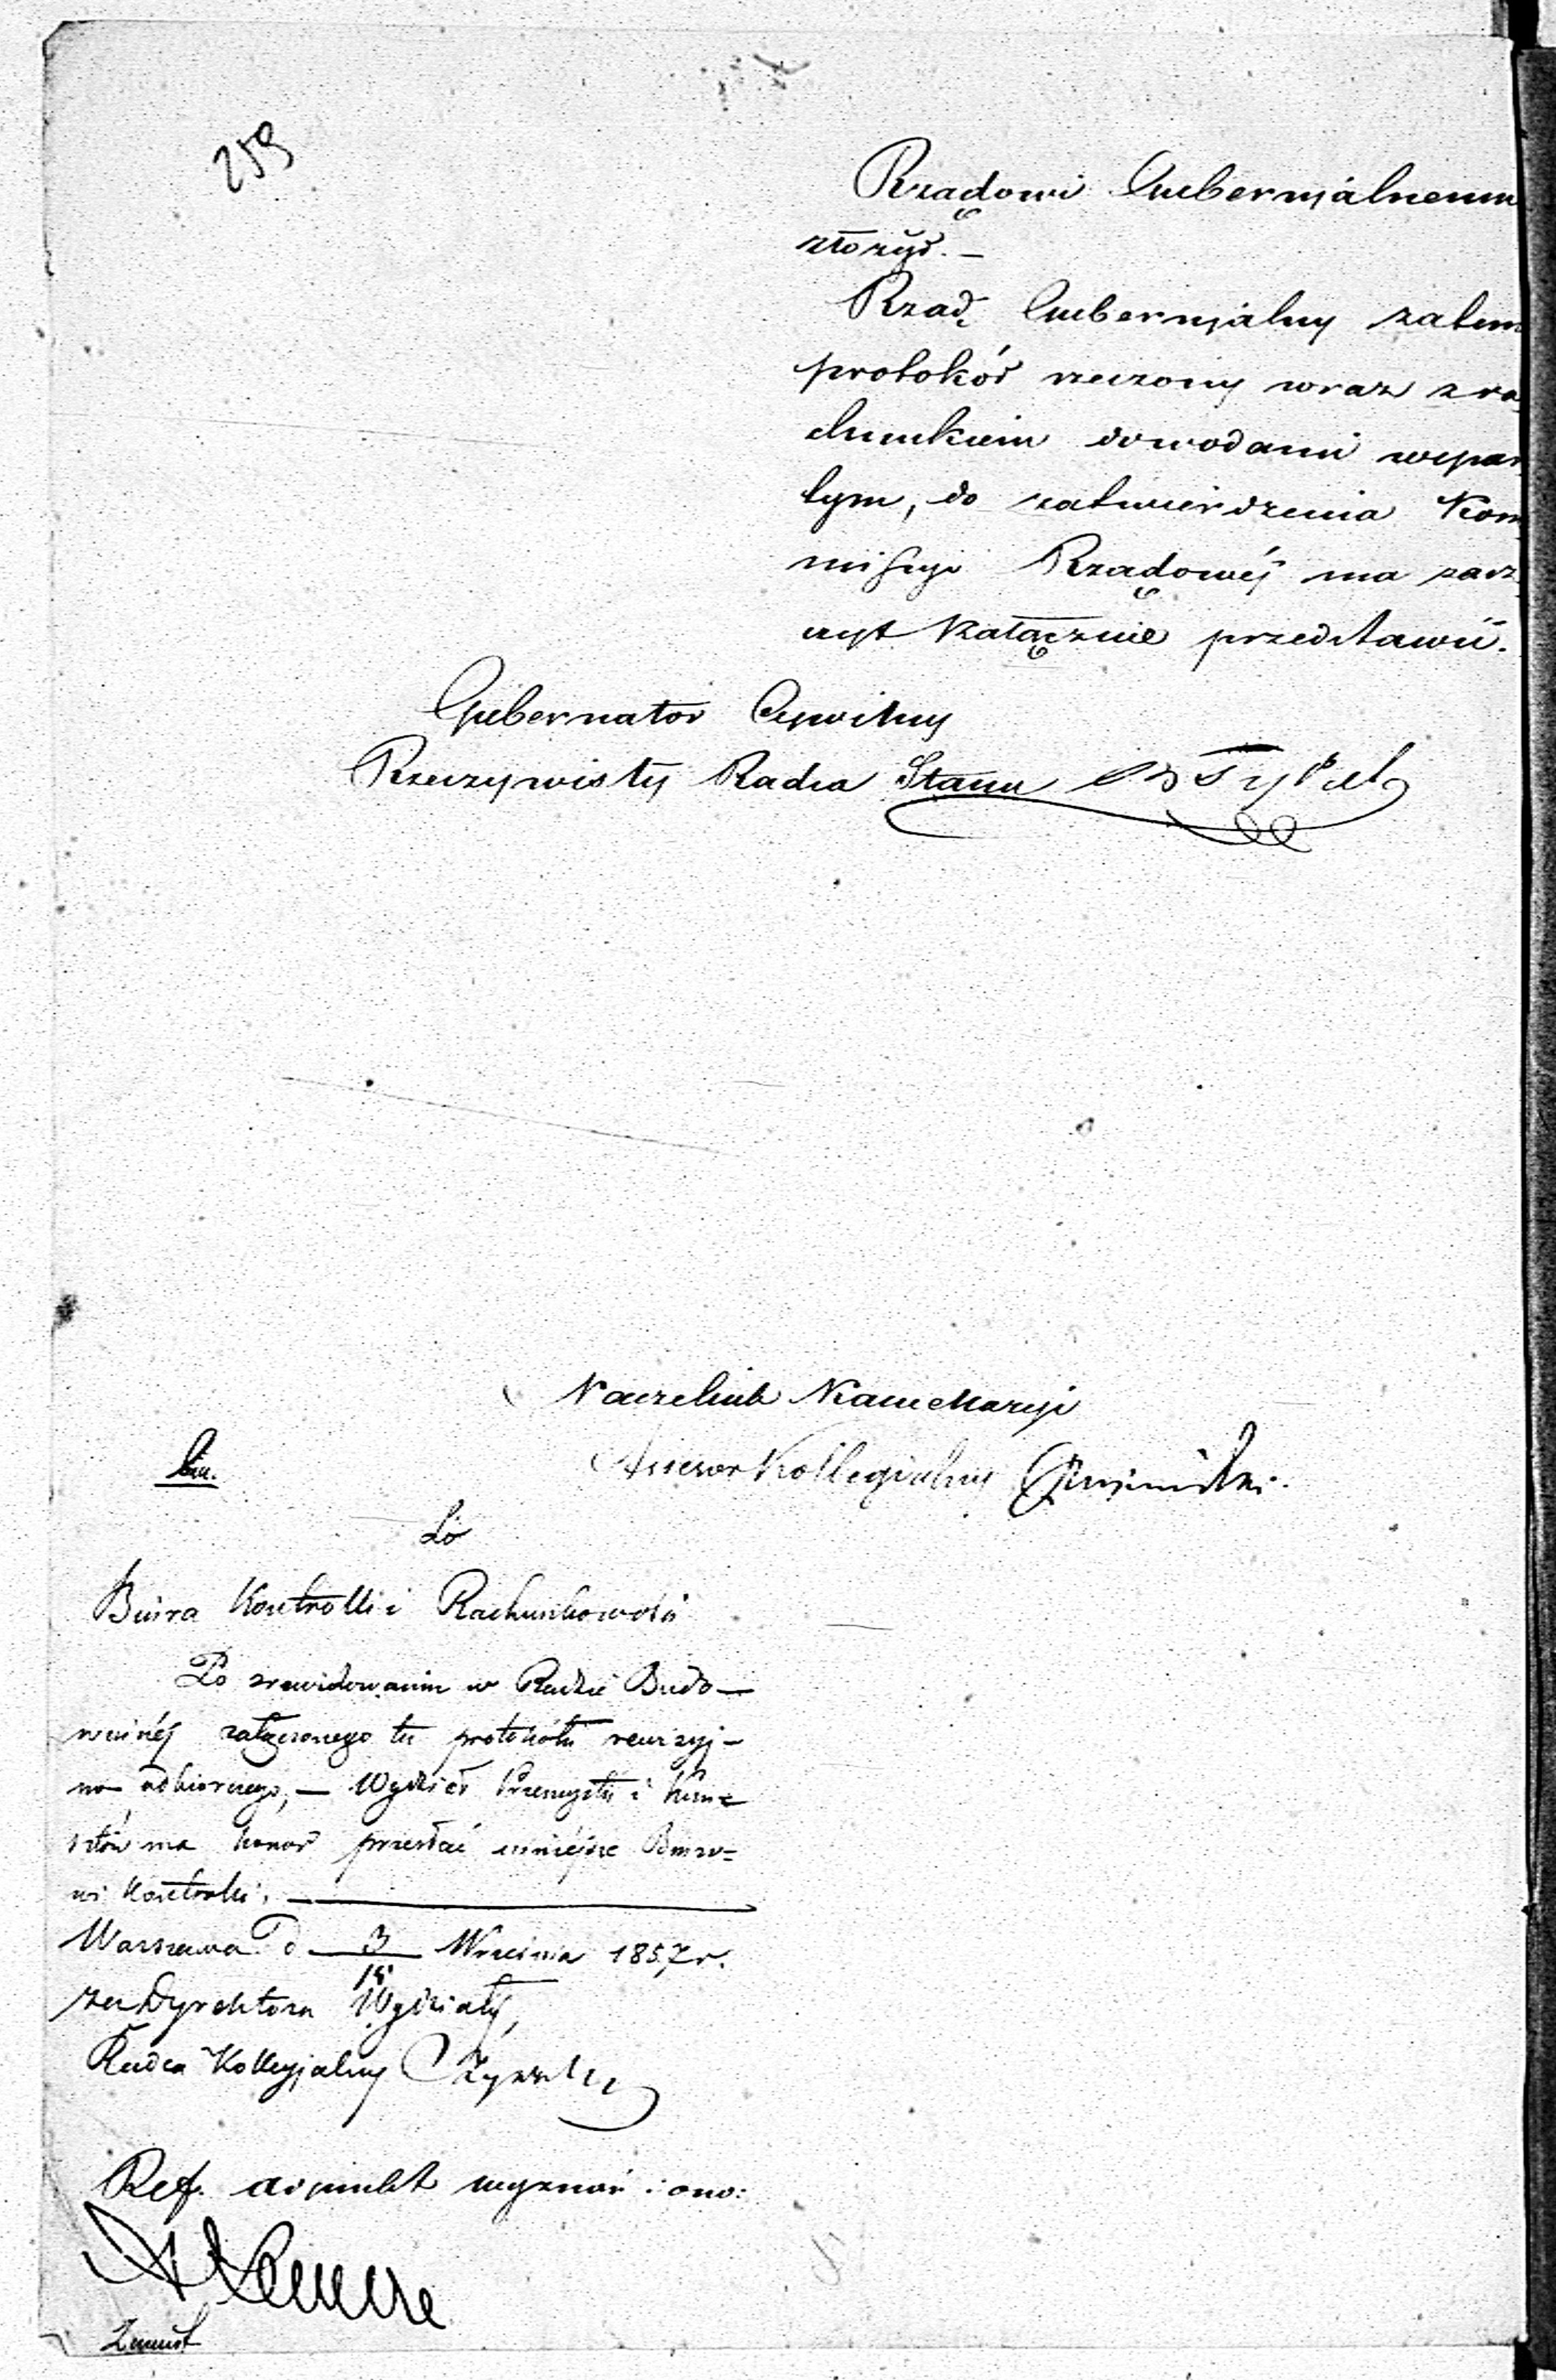 259
Rządowi Gubernjalnemu
złożył. —
Rząd Gubernjalny zatem
protokół rzeczony wraz z ra
chunkiem dowodami wspar
tym, do zatwierdzenia Kom
missyi Rządowéj ma zasz
czyt załącznie przedstawić.
Gubernator Cywilny
Rzeczywisty Radca Stanu
Naczelnik Kancellaryi
Assesor Kollegialny
Do
Biura Kontrolli i Rachunkowości
Po zrewidowaniu w Radzie Budo—
wniczéj załączonego tu protokółu rewizyj—
no odbiorczego, — Wydział Przemysłu i Kun=
sztów ma honor przesłać niniejsze Biuro=
wi Kontrolli. —
Warszawa d 3/15 Września 1857 r.
za Dyrektora Wydziału,
Radca Kollegjalny
Ref.